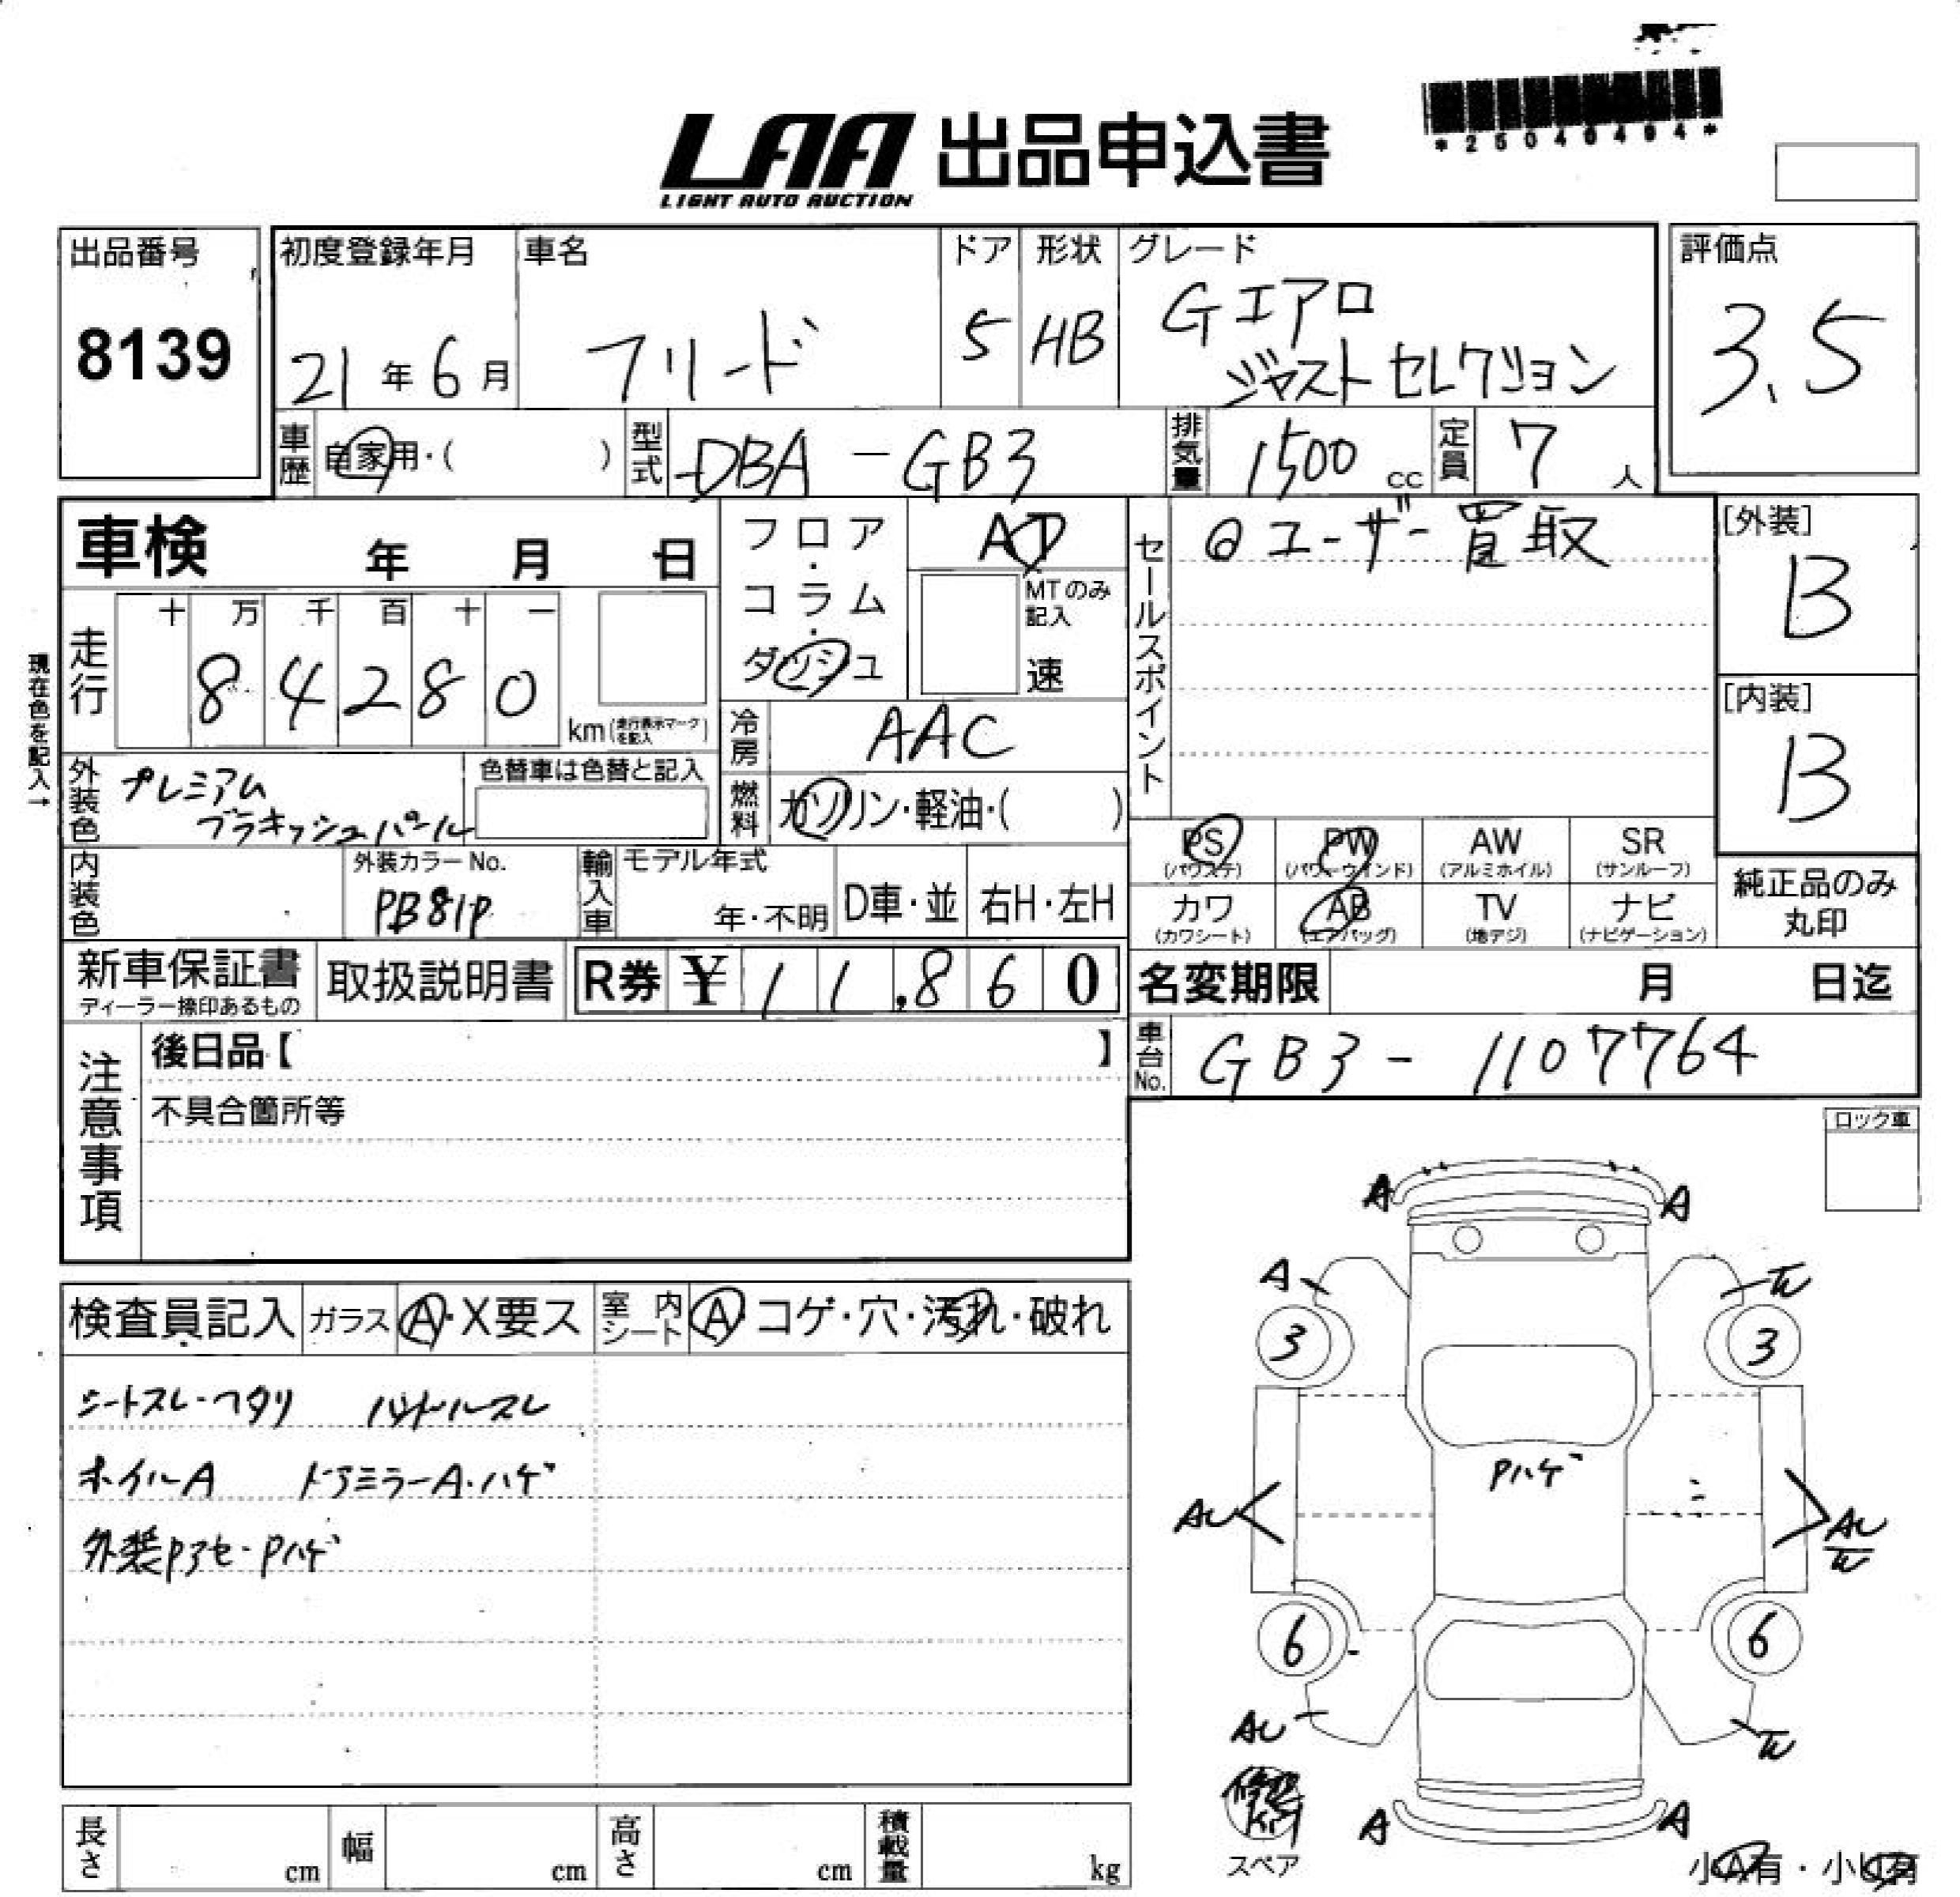 *25040494*
LAA 出品申込書
LIGHT AUTO AUCTION
出品番号
8139
初度登録年月
21年6月
車名
フリード
ドア
5
形状
HB
グレード
Gエアロ
ジャストセレクション
評価点
3.5
車歴
自家用・( )
型式
DBA-GB3
排気量
1500cc
定員
7人
車検 年 月 日
フロア・コラム・ダッシュ
AT
MTのみ記入
速
セールスポイント
◎ユーザー買取
[外装]
B
[内装]
B
現在色を記入→
走行
十 万 千 百 十 一
8 4 2 8 0
km(走行表示マークを記入)
冷房
AAC
燃料
ガソリン・軽油・( )
外装色
プレミアム
ブラキッシュパール
色替車は色替と記入
内装色
外装カラーNo.
PB81P
輸入車
モデル年式
年・不明
D車・並
右H・左H
PS
(パワステ)
PW
(パワーウインド)
AW
(アルミホイル)
SR
(サンルーフ)
カワ
(カワシート)
AB
(エアバッグ)
TV
(地デジ)
ナビ
(ナビゲーション)
純正品のみ
丸印
新車保証書
ディーラー捺印あるもの
取扱説明書
R券 ¥11,860
名変期限 月 日迄
車台No.
GB3-1107764
注意事項
後日品【 】
不具合箇所等
ロック車
検査員記入
ガラス
A・X要ス
室内シート
A コゲ・穴・汚れ・破れ
シートスレ・ヘタリ ハンドルスレ
ホイルA ドアミラーA・ハゲ
外装Pアセ・Pハゲ
A A
A W
3 3
Pハゲ
AU AU
W
6 6
AU W
A A
スペア
小A有・小U有
長さ cm
幅 cm
高さ cm
積載量 kg